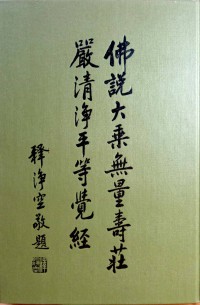 佛說大乘無量壽莊
嚴清淨平等覺經
釋淨空敬題